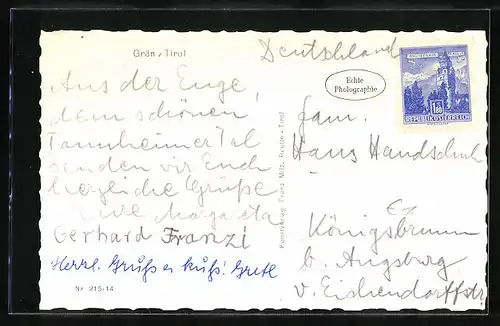 Grän, Tirol
Aus der Enge,
dem schönen
Tannheimer Tal
senden wir Euch
herzliche Grüße
Eure Margareta
Gerhard Franzi
Herzl. Gruß u. Kuß! Gretl
Nr 215/14
Kunstverlag Franz Milz, Reutte - Tirol
Deutschland
Echte
Photographie
REPUBLIK ÖSTERREICH
Fam.
Hans Handschuh
Königsbrunn
b. Augsburg
v. Eichendorffstr.